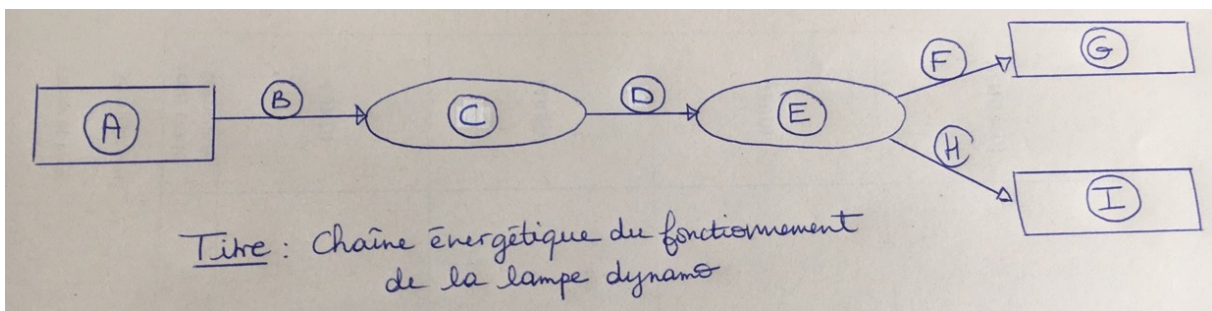 A
B
C
D
E
F
G
H
I
Titre : Chaîne énergétique du fonctionnement
de la lampe dynamo